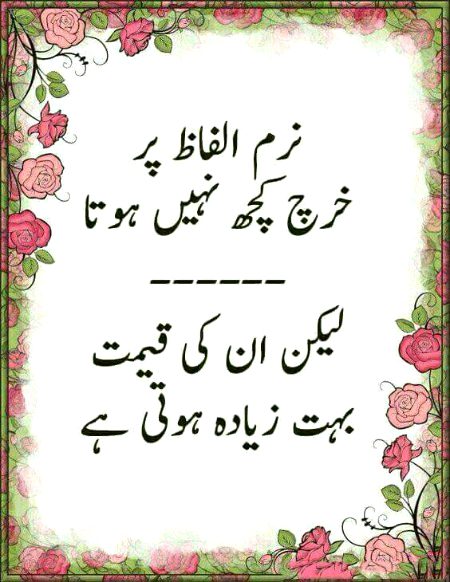 نرم الفاظ پر
خرچ کچھ نہیں ہوتا
------
لیکن ان کی قیمت
بہت زیادہ ہوتی ہے